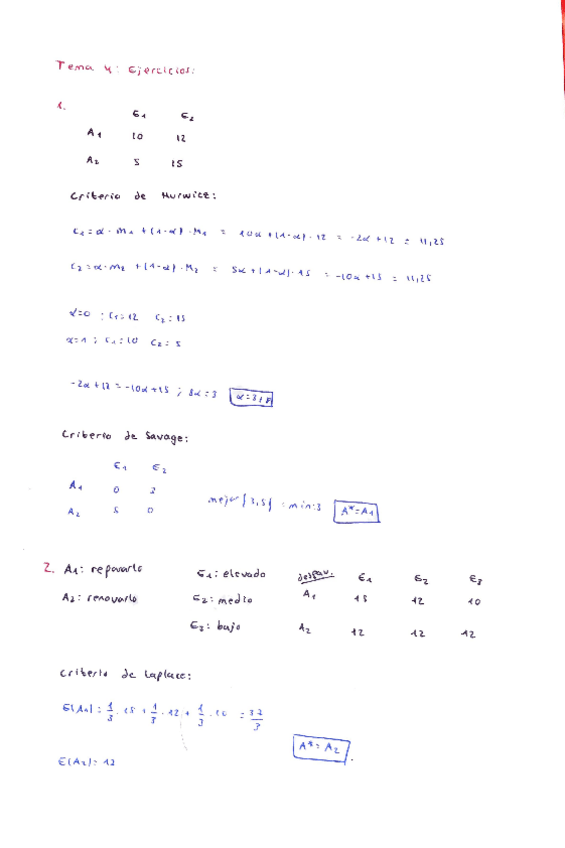 Tema 4: Ejercicios:
1.
E1 E2
A1 10 12
A2 5 15
Criterio de Hurwice:
C1 = α · m1 + (1-α) · M1 = 10α + (1-α) · 12 = -2α + 12 = 11,25
C2 = α · m2 + (1-α) · M2 = 5α + (1-α) · 15 = -10α + 15 = 11,25
α=0 ; C1 = 12 C2 = 15
α=1 ; C1 = 10 C2 = 5
-2α + 12 = -10α + 15 ; 8α = 3 α = 3/8
Criterio de Savage:
E1 E2
A1 0 3
A2 5 0
mejor {3,5} = min = 3 A* = A1
2. A1: repararlo E1: elevado despav. E1 E2 E3
A2: renovarlo E2: medio A1 15 12 10
E3: bajo A2 12 12 12
Criterio de Laplace:
E(A1) = 1/3 · 15 + 1/3 · 12 + 1/3 · 10 = 37/3
A* = A2
E(A2) = 12